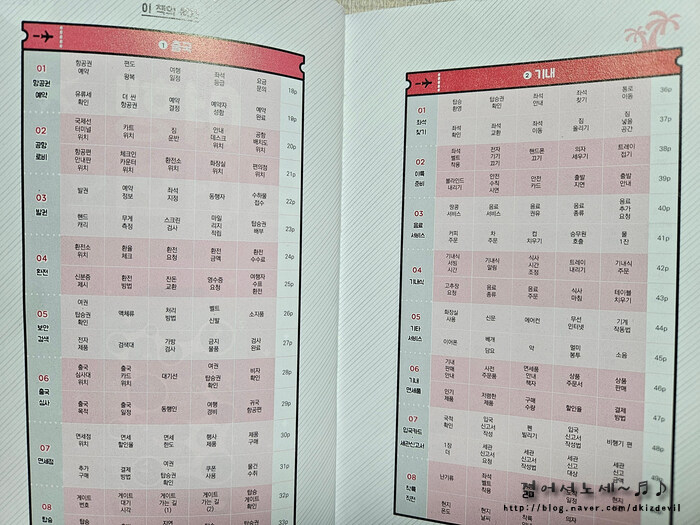 이 책의
1 출국
01
항공권
예약
항공권
예약
편도
왕복
여행
일정
좌석
등급
요금
문의
18p
유류세
확인
더 싼
항공권
예약
결정
예약자
성함
예약
완료
19p
02
공항
로비
국제선
터미널
위치
카트
위치
짐
운반
안내
데스크
위치
공항
배치도
위치
20p
항공편
안내판
위치
체크인
카운터
위치
환전소
위치
화장실
위치
편의점
위치
21p
03
발권
발권
예약
정보
좌석
지정
동행자
수하물
접수
22p
핸드
캐리
무게
측정
스크린
검사
마일
리지
적립
탑승권
배부
23p
04
환전
환전소
위치
환율
체크
환전
요청
환전
금액
환전
수수료
24p
신분증
제시
환전
방법
잔돈
교환
영수증
요청
여행자
수표
환전
25p
05
보안
검색
여권
탑승권
확인
액체류
처리
방법
벨트
신발
소지품
26p
전자
제품
검색대
가방
검사
금지
물품
검사
완료
27p
06
출국
심사
출국
심사대
위치
출국
카드
위치
대기선
여권
탑승권
확인
비자
확인
28p
출국
목적
출국
일정
동행인
여행
경비
귀국
항공편
29p
07
면세점
면세점
위치
면세
할인율
면세
한도
행사
제품
제품
구매
30p
추가
구매
결제
방법
여권
탑승권
확인
쿠폰
사용
물건
수취
31p
08
탑승
게이트
번호
게이트
대기
시각
게이트
가는 길
(1)
게이트
가는 길
(2)
탑승구
확인
32p
33p
2 기내
01
좌석
찾기
탑승
환영
탑승권
확인
좌석
안내
좌석
찾기
통로
이동
36p
좌석
확인
좌석
교환
좌석
이동
짐
올리기
짐
넣을
공간
37p
02
이륙
준비
좌석
벨트
착용
전자
기기
끄기
핸드폰
끄기
의자
세우기
트레이
접기
38p
블라인드
내리기
안전
수칙
시연
안전
카드
출발
지연
출발
안내
39p
03
음료
서비스
땅콩
서비스
음료
서비스
음료
권유
음료
종류
음료
추가
요청
40p
커피
주문
차
주문
컵
치우기
승무원
호출
물
1잔
41p
04
기내식
기내식
서빙
시간
기내식
알림
식사
시간
조정
트레이
내리기
기내식
주문
42p
고추장
요청
음료
종류
음료
주문
식사
마침
테이블
치우기
43p
05
기타
서비스
화장실
사용
신문
에어컨
무선
인터넷
기계
작동법
44p
이어폰
베개
담요
약
멀미
봉투
소음
45p
06
기내
면세품
기내
판매
안내
사전
주문품
면세품
안내
책자
상품
주문서
상품
판매
46p
인기
제품
저렴한
제품
구매
수량
할인율
결제
방법
47p
07
입국카드
세관신고서
국적
확인
입국
신고서
작성
펜
빌리기
입국
신고서
작성법
비행기 편
48p
1장
더
세관
신고서
요청
세관
신고서
작성법
세관
신고
대상
세관
신고
금액
49p
08
착륙
직전
난기류
좌석
벨트
착용
현지
온도
현지
날씨
의자
젊어서노세~♪♪
http://blog.naver.com/dkizdevil